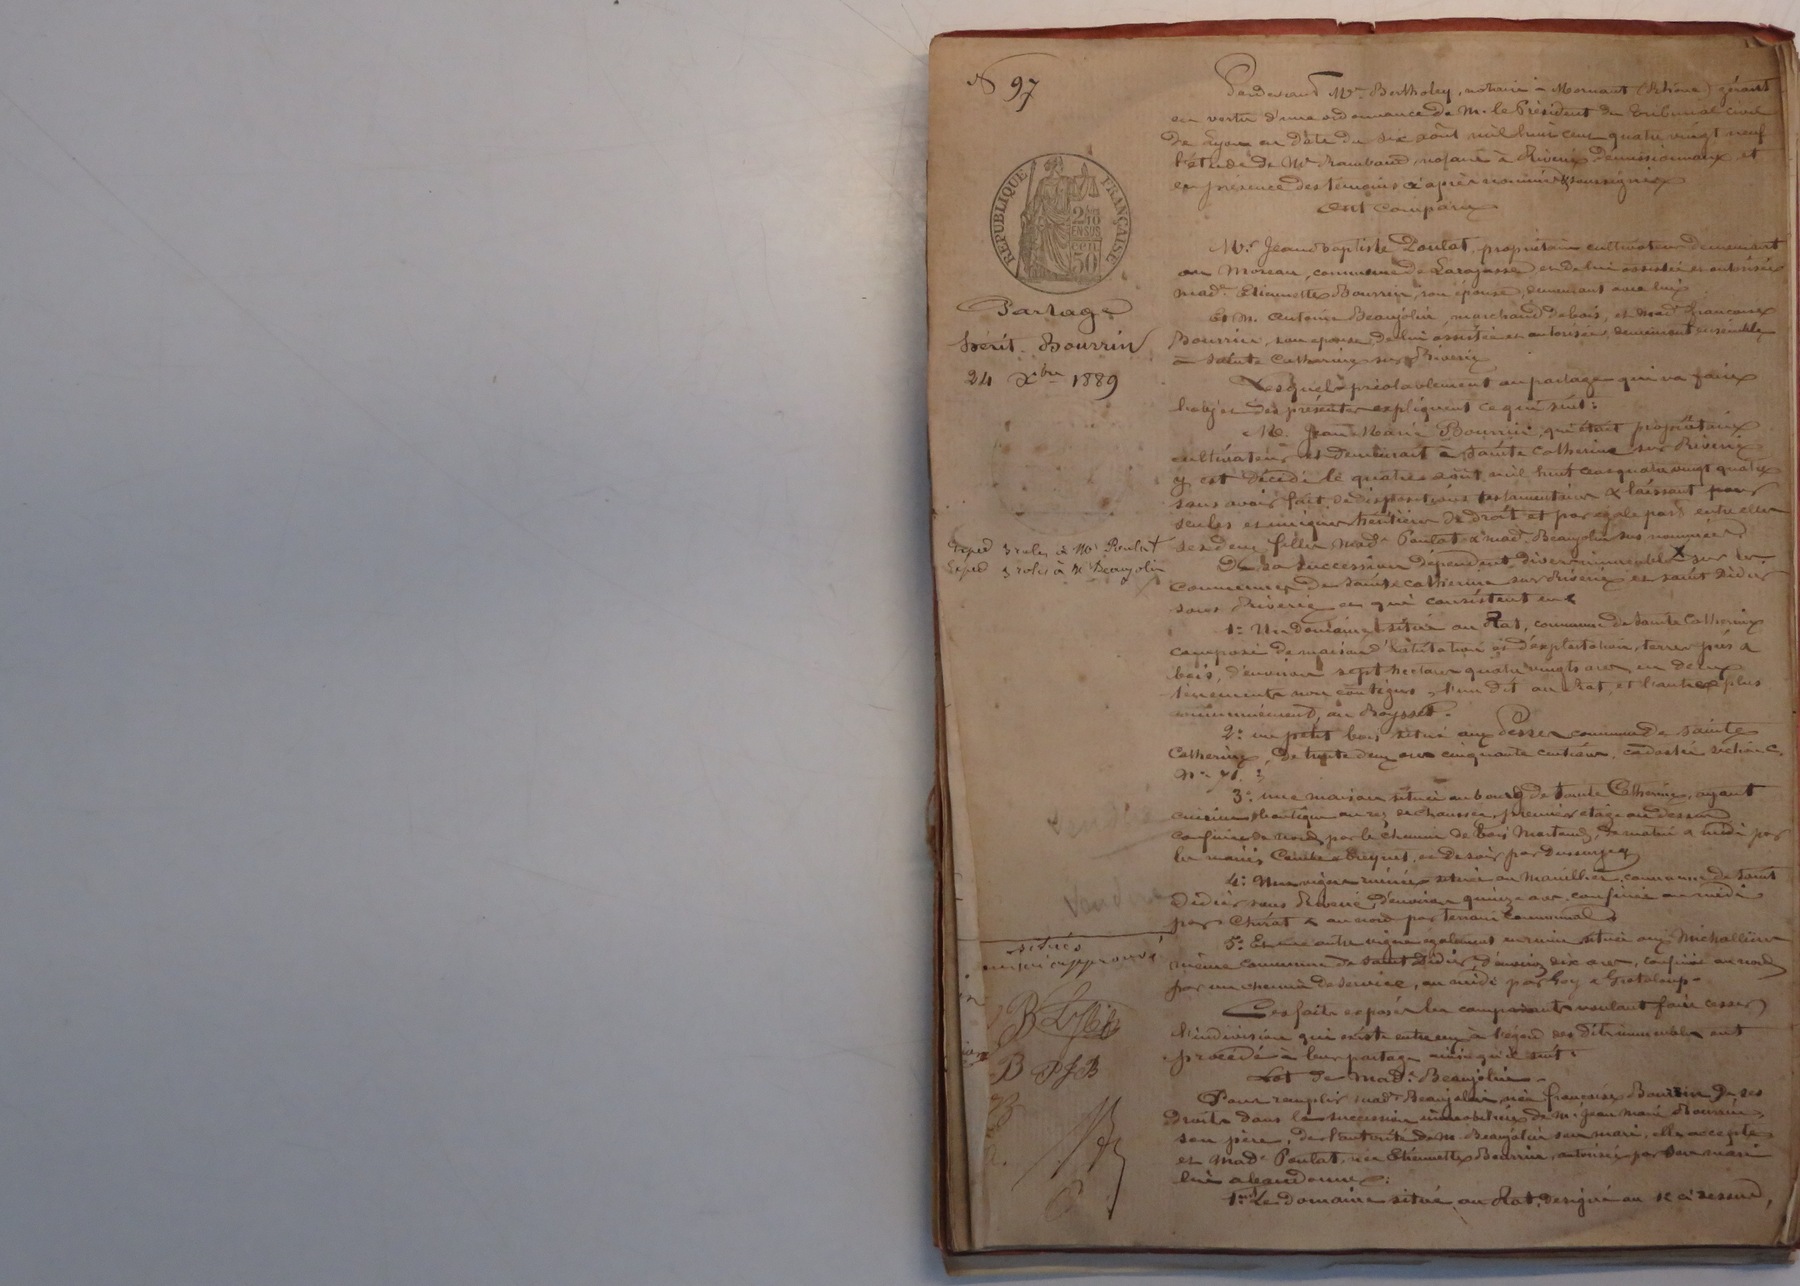 N° 97
REPUBLIQUE FRANÇAISE
2/10
EN SUS
50 cen
Partage
hérit. Bourrin
24 Xbre 1889
Exped 3 roles à Mr Poulat
Exped 3 roles à M Beaujolin
Pardevant Me Bertholey, notaire à Mornant (Rhône) gérant
en vertu d'une ordonnance de Mr le Président du tribunal civil
de Lyon en date du six août mil huit cent quatre vingt neuf
l'étude de Me Rambaud, notaire à Riverie, démissionnaire et
en présence des témoins ci après nommés & soussignés
Ont comparu
Mr Jean baptiste Poulat, propriétaire cultivateur demeurant
au Moreau, commune de Larajasse et de lui assistée et autorisée
Made Etiennette Bourrin, son épouse, demeurant avec lui
Et M. Antoine Beaujolin, marchand de bois, et Made Françoise
Bourrin, son épouse, de lui assistée et autorisée, demeurant ensemble
à Sainte Catherine sur Riverie
Lesquels préalablement au partage qui va faire
l'objet des présentes expliquent ce qui suit:
M. Jean Marie Bourrin, qui était propriétaire
cultivateur et demeurait à Sainte Catherine sur Riverie
y est décédé le quatre août mil huit cent quatre vingt quatre
sans avoir fait de dispositions testamentaires & laissant pour
seules et uniques héritières de droit et par égale part entre elles
ses deux filles Made Poulat & Made Beaujolin sus nommées
De sa succession dépendent divers immeubles X sur les
communes de Sainte Catherine sur Riverie et Saint Didier
sous Riverie et qui consistent en
1° Un domaine situé au Rat, commune de Sainte Catherine
composé de maison d'habitation et d'exploitation, terres prés &
bois, d'environ sept hectares quatre vingts ares en deux
tènements non contigus, l'un dit au Rat, et l'autre plus
communément, au Roysset.
2° un petit bois situé aux Desses commune de Sainte
Catherine, de trente deux ares cinquante centiares, cadastré section C
N° 71.
3° une maison située au bourg de Sainte Catherine, ayant
cuisine boutique au rez de chaussée, premier étage au dessus
confinée de nord par le chemin de bois Martand, de matin & midi par
les mariés et de soir par Dussurgey
4° Une vigne ruinée située au commune de Saint
Didier sous Riverie, d'environ quinze ares confinée au midi
par Chirat & au nord par terrain communal
5° Et une autre vigne également en ruine située aux
même commune de Saint Didier, d'environ dix ares, confinée au nord
par un chemin de service, au midi par Goy & Grataloup.
Ces faits exposés les comparants voulant faire cesser
l'indivision qui existe entre eux à l'égard des dits immeubles ont
procédé à leur partage ainsi qu'il suit:
Lot de Made Beaujolin.
Pour remplir Made Beaujolin née Françoise Bourrin de ses
droits dans la succession immobilière de M. Jean Marie Bourrin,
son père, de l'autorité de M. Beaujolin son mari, elle accepte
et Made Poulat, née Etiennette Bourrin, autorisée par son mari
lui abandonne:
1° Le domaine situé au Rat, désigné au 1° ci dessus,
X situés
approuvé
B
B P J B